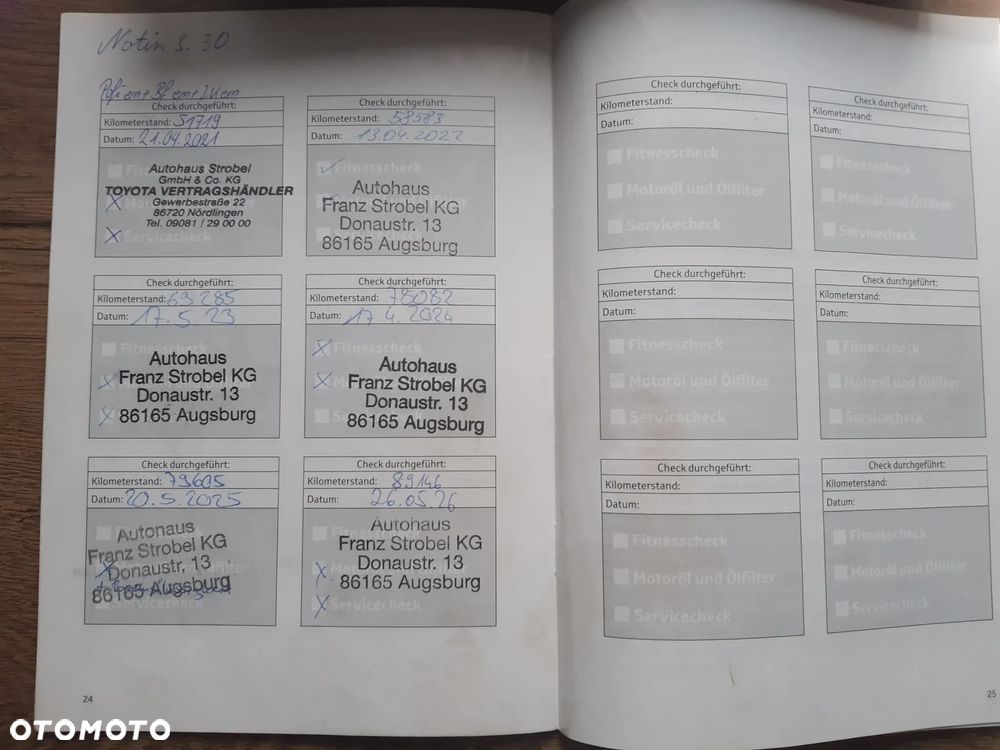 Notiz S. 30
Check durchgeführt:
Kilometerstand: 51719
Datum: 21.04.2021
Fitnesscheck
Autohaus Strobel
GmbH & Co. KG
TOYOTA VERTRAGSHÄNDLER
Gewerbestraße 22
86720 Nördlingen
Tel. 09081 / 29 00 00
Servicecheck
Check durchgeführt:
Kilometerstand: 58583
Datum: 13.04.2022
Fitnesscheck
Autohaus
Franz Strobel KG
Donaustr. 13
86165 Augsburg
Check durchgeführt:
Kilometerstand: 69285
Datum: 17.5.23
Fitnesscheck
Autohaus
Franz Strobel KG
Donaustr. 13
86165 Augsburg
Check durchgeführt:
Kilometerstand: 78082
Datum: 17.4.2024
Fitnesscheck
Autohaus
Franz Strobel KG
Donaustr. 13
86165 Augsburg
Check durchgeführt:
Kilometerstand: 79605
Datum: 20.5.2025
Autohaus
Franz Strobel KG
Donaustr. 13
86165 Augsburg
Servicecheck
Check durchgeführt:
Kilometerstand: 89146
Datum: 26.05.26
Autohaus
Franz Strobel KG
Donaustr. 13
86165 Augsburg
Servicecheck
24
Check durchgeführt:
Kilometerstand:
Datum:
Fitnesscheck
Motoröl und Ölfilter
Servicecheck
Check durchgeführt:
Kilometerstand:
Datum:
Fitnesscheck
Motoröl und Ölfilter
Servicecheck
Check durchgeführt:
Kilometerstand:
Datum:
Fitnesscheck
Motoröl und Ölfilter
Servicecheck
Check durchgeführt:
Kilometerstand:
Datum:
Fitnesscheck
Motoröl und Ölfilter
Servicecheck
Check durchgeführt:
Kilometerstand:
Datum:
Fitnesscheck
Motoröl und Ölfilter
Servicecheck
Check durchgeführt:
Kilometerstand:
Datum:
Fitnesscheck
Motoröl und Ölfilter
Servicecheck
25
OTOMOTO